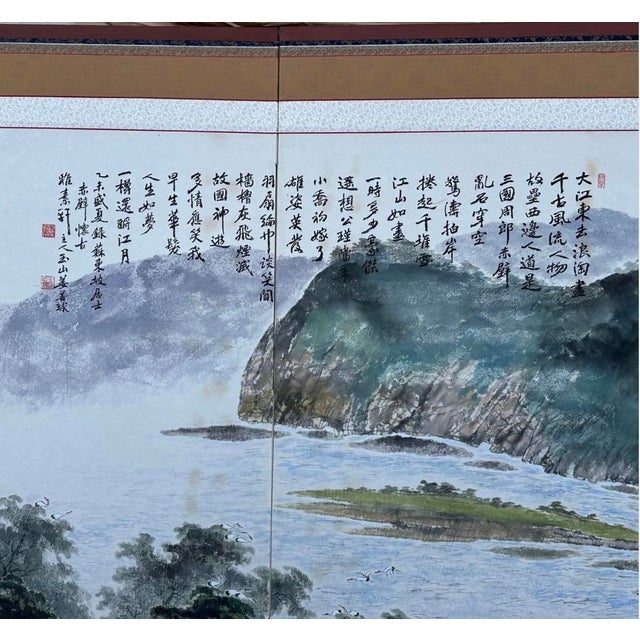 大江東去浪淘盡
千古風流人物
故壘西邊人道是
三國周郎赤壁
亂石穿空
驚濤拍岸
捲起千堆雪
江山如畫
一時多少豪傑
遙想公瑾當年
小喬初嫁了
雄姿英發
羽扇綸巾談笑間
檣櫓灰飛煙滅
故國神遊
多情應笑我
早生華髮
人生如夢
一樽還酹江月
乙未盛夏錄蘇東坡居士
赤壁懷古
雅素軒主人玉山